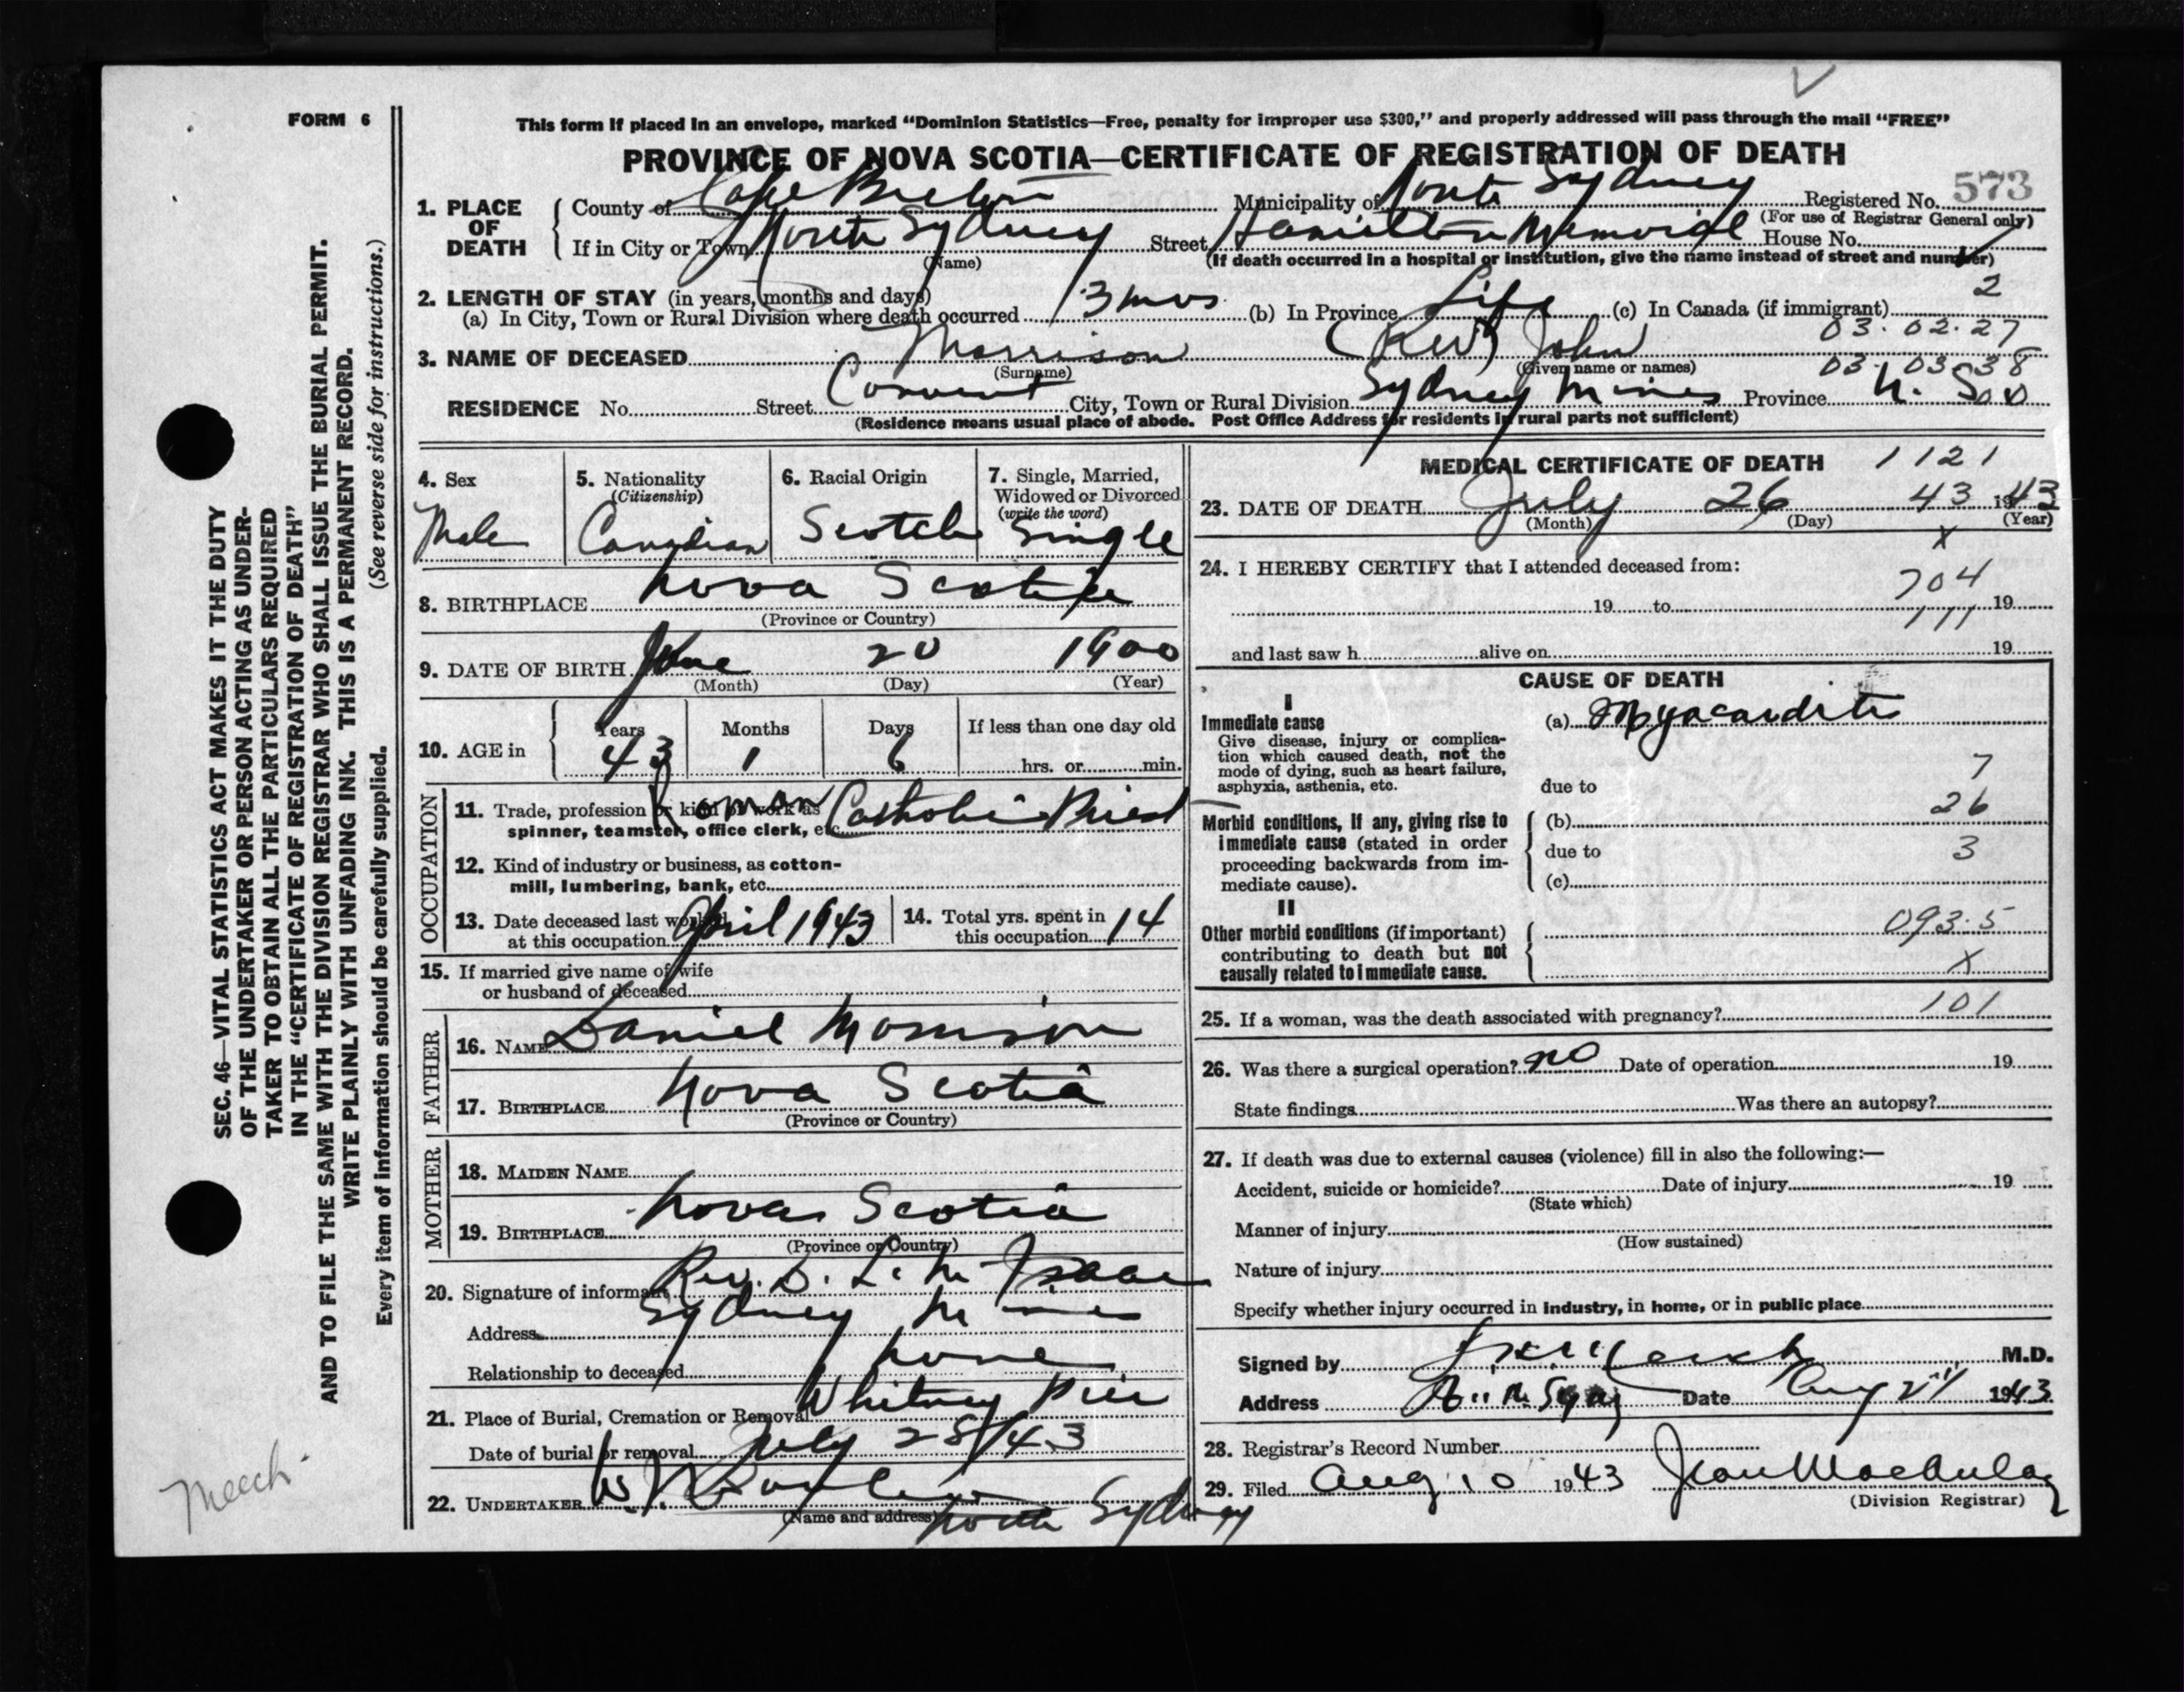 FORM 6
This form if placed in an envelope, marked “Dominion Statistics—Free, penalty for improper use $300,” and properly addressed will pass through the mail “FREE”
PROVINCE OF NOVA SCOTIA—CERTIFICATE OF REGISTRATION OF DEATH
1. PLACE OF DEATH { County of Cape Breton Municipality of North Sydney Registered No. 573
(For use of Registrar General only)
If in City or Town North Sydney Street Hamilton Memorial House No.
(Name) (If death occurred in a hospital or institution, give the name instead of street and number)
2. LENGTH OF STAY (in years, months and days) 2
(a) In City, Town or Rural Division where death occurred 3 mos (b) In Province Life (c) In Canada (if immigrant)
03.02.27
3. NAME OF DECEASED Morrison (Rev) John
(Surname) (Given name or names) 03.03.38
RESIDENCE No. Street Convent City, Town or Rural Division Sydney Mines Province N. S.
(Residence means usual place of abode. Post Office Address for residents in rural parts not sufficient)
4. Sex Male
5. Nationality (Citizenship) Canadian
6. Racial Origin Scotch
7. Single, Married, Widowed or Divorced (write the word) Single
8. BIRTHPLACE Nova Scotia
(Province or Country)
9. DATE OF BIRTH June 20 1900
(Month) (Day) (Year)
10. AGE in { Years 43 Months 1 Days 6 If less than one day old
hrs. or min.
OCCUPATION
11. Trade, profession or kind of work as Roman Catholic Priest
spinner, teamster, office clerk, etc.
12. Kind of industry or business, as cotton-
mill, lumbering, bank, etc.
13. Date deceased last worked at this occupation April 1943
14. Total yrs. spent in this occupation 14
15. If married give name of wife
or husband of deceased
FATHER
16. NAME Daniel Morrison
17. BIRTHPLACE Nova Scotia
(Province or Country)
MOTHER
18. MAIDEN NAME
19. BIRTHPLACE Nova Scotia
(Province or Country)
20. Signature of informant Rev. D. L. McIsaac
Address Sydney Mines
Relationship to deceased none
21. Place of Burial, Cremation or Removal Whitney Pier
Date of burial or removal July 28/43
22. UNDERTAKER W. J.
(Name and address) North Sydney
MEDICAL CERTIFICATE OF DEATH 1121
23. DATE OF DEATH July 26 43 1943
(Month) (Day) (Year)
x
24. I HEREBY CERTIFY that I attended deceased from:
704
19 to 19
111
and last saw h alive on 19
CAUSE OF DEATH
I
Immediate cause (a) Myocarditis
Give disease, injury or complica-
tion which caused death, not the
mode of dying, such as heart failure,
asphyxia, asthenia, etc. due to 7
Morbid conditions, if any, giving rise to (b) 26
immediate cause (stated in order due to 3
proceeding backwards from im- (c)
mediate cause).
II
Other morbid conditions (if important) 093.5
contributing to death but not
causally related to immediate cause. x
101
25. If a woman, was the death associated with pregnancy?
26. Was there a surgical operation? no Date of operation 19
State findings Was there an autopsy?
27. If death was due to external causes (violence) fill in also the following:—
Accident, suicide or homicide? Date of injury 19
(State which)
Manner of injury
(How sustained)
Nature of injury
Specify whether injury occurred in industry, in home, or in public place
Signed by M.D.
Address Date Aug 1943
28. Registrar's Record Number
29. Filed Aug 10 1943 Jean
(Division Registrar)
SEC. 46—VITAL STATISTICS ACT MAKES IT THE DUTY
OF THE UNDERTAKER OR PERSON ACTING AS UNDER-
TAKER TO OBTAIN ALL THE PARTICULARS REQUIRED
IN THE “CERTIFICATE OF REGISTRATION OF DEATH”
AND TO FILE THE SAME WITH THE DIVISION REGISTRAR WHO SHALL ISSUE THE BURIAL PERMIT.
WRITE PLAINLY WITH UNFADING INK. THIS IS A PERMANENT RECORD.
Every item of information should be carefully supplied. (See reverse side for instructions.)
Meech.